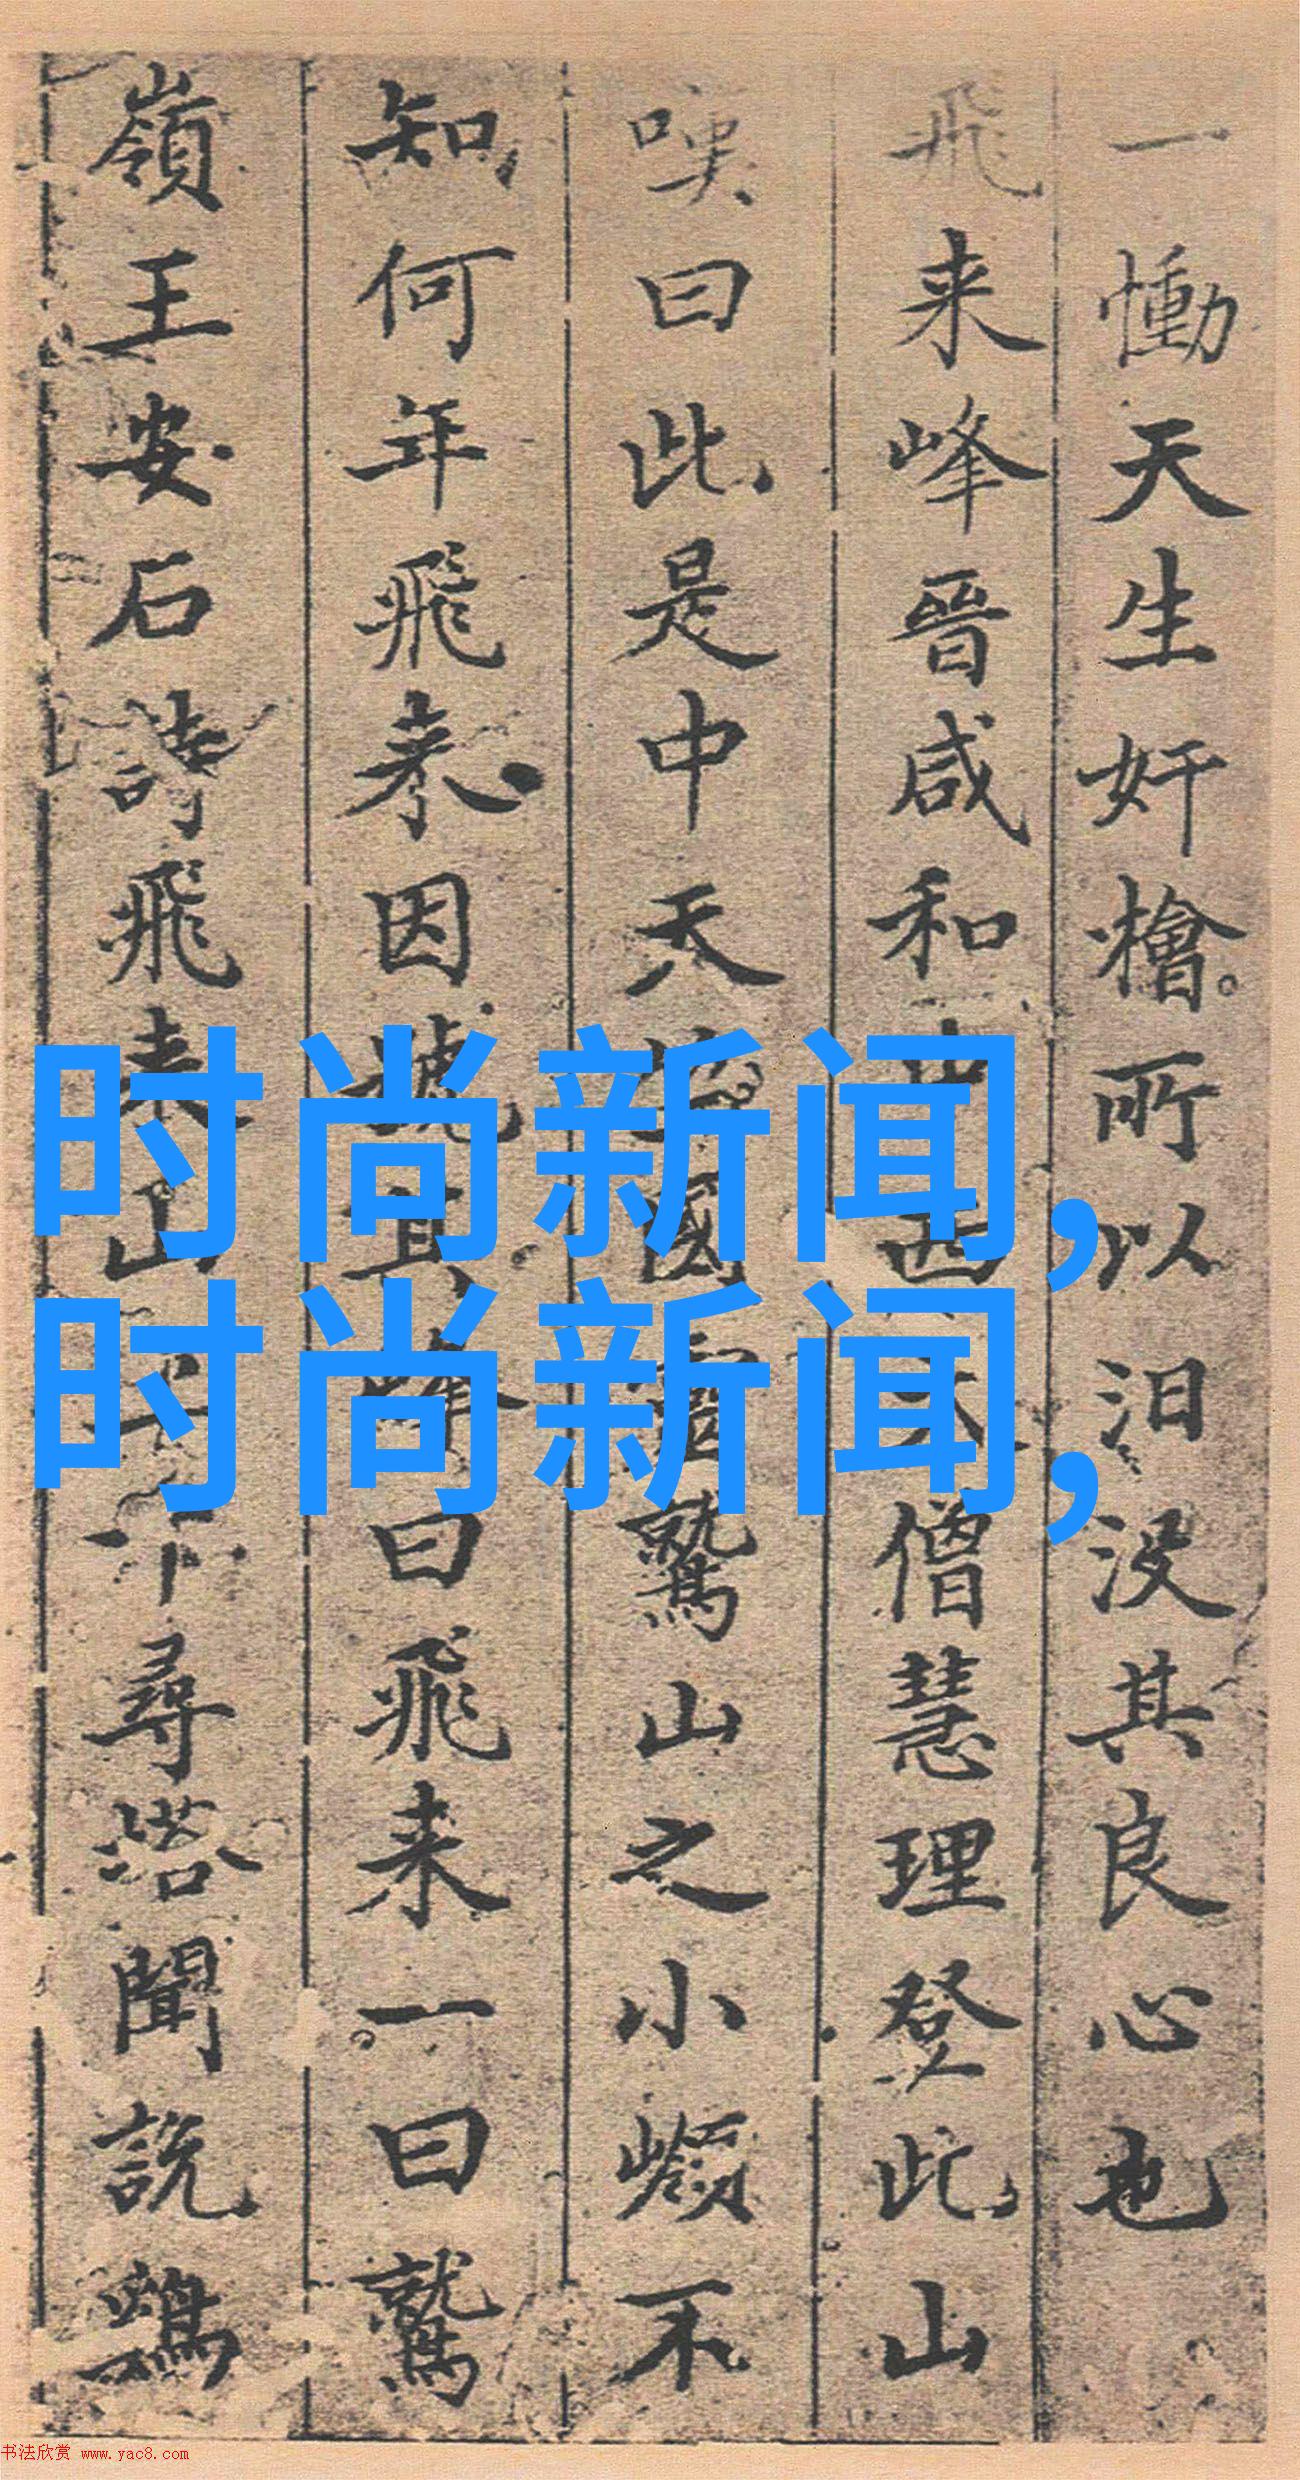 一慟天生奸檜所以汨没其良心也
飛来峰晉咸和中西天僧慧理登此山
嘆曰此是中天竺國靈鷲山之小嶺不
知何年飛来因號其峰曰飛来一曰鷲
嶺王安石詩飛来山上千尋塔聞説鷄
时尚新闻,
时尚新闻,
书法欣赏 www.yac8.com